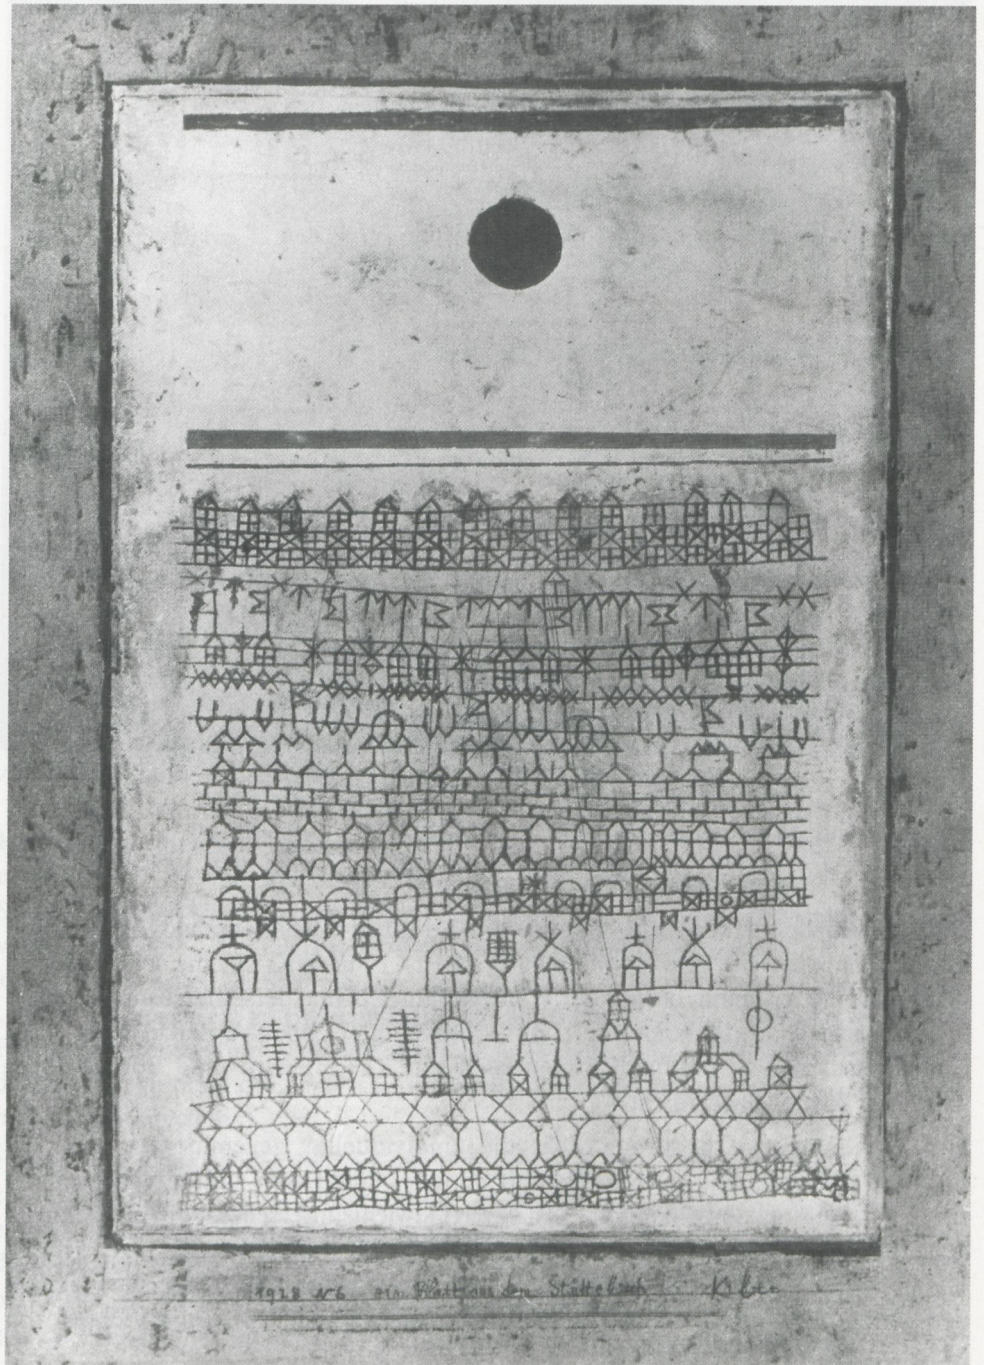 1928 N6 ein Blatt aus dem Städtebuch Klee